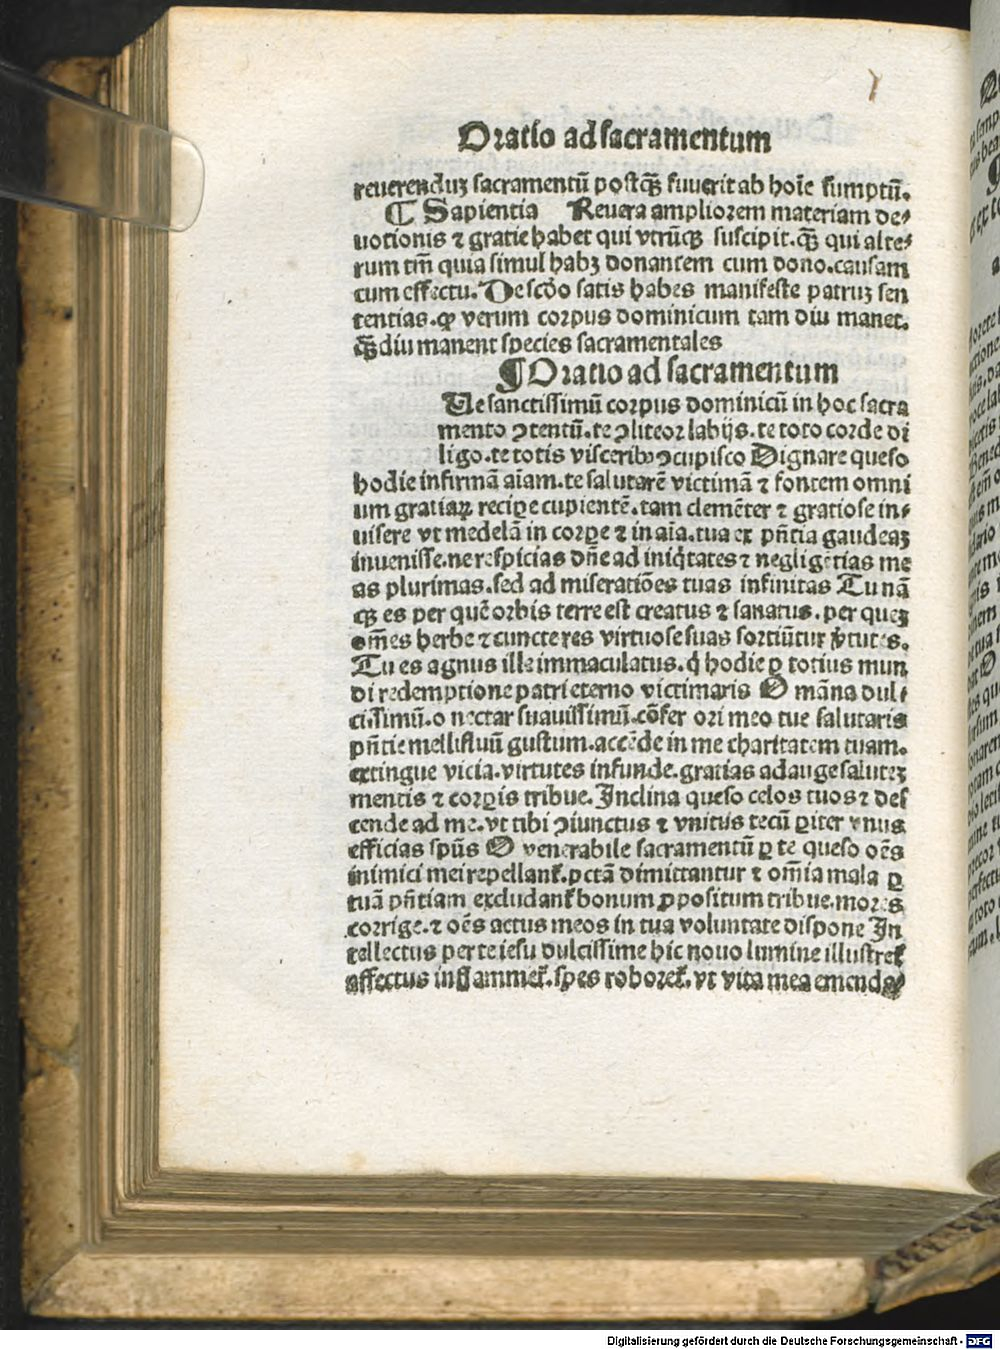 Oratio ad sacramentum
reuerenduꝫ sacramentū postqꝫ̄ fuuerit ab hoīe sumptū.
¶ Sapientia Reuera ampliorem materiam de⸗
uotionis ⁊ gratie habet qui vtrūqꝫ suscipit.qꝫ̄ qui alte⸗
rum tm̄ quia simul habꝫ donantem cum dono.causam
cum effectu. De scd̄o satis habes manifeste patruꝫ sen
tentias.ꝙ verum corpus dominicum tam diu manet.
qꝫ̄diu manent species sacramentales
¶ Oratio ad sacramentum
Te sanctissimū corpus dominicū in hoc sacra
mento ꝯtentū.te ꝯfiteor labijs.te toto corde di
ligo.te totis visceribꝰ ꝯcupisco Dignare queso
hodie infirmā aīam.te salutarē victimā ⁊ fontem omni
um gratiaꝝ recipe cupientē.tam clemēter ⁊ gratiose in⸗
uisere vt medelā in corꝑe ⁊ in aīa.tua ex pn̄tia gaudeaꝫ
inuenisse.ne respicias dn̄e ad iniq̄tates ⁊ negligētias me
as plurimas.sed ad miseratiōes tuas infinitas Tu nā
qꝫ es per quē orbis terre est creatus ⁊ sanatus.per queꝫ
om̄es herbe ⁊ cuncte res virtuose suas sortiūtur v̄tutes.
Tu es agnus ille immaculatus.q̄ hodie ꝓ totius mun
di redemptione patri eterno victimaris O māna dul⸗
cissimū.o nectar suauissimū.cōfer ori meo tue salutaris
pn̄tie mellifluū gustum.accēde in me charitatem tuam.
extingue vicia.virtutes infunde.gratias adauge saluteꝫ
mentis ⁊ corꝑis tribue. Inclina queso celos tuos ⁊ des
cende ad me.vt tibi ꝯiunctus ⁊ vnitus tecū ꝑiter vnus
efficias spūs O venerabile sacramentū ꝑ te queso oēs
inimici mei repellanť.pctā dimittantur ⁊ om̄ia mala ꝑ
tuā pn̄tiam excludanť bonum ꝓpositum tribue.mores
corrige.⁊ oēs actus meos in tua voluntate dispone In
tellectus per te iesu dulcissime hic nouo lumine illustreť
affectus inflammeť.spes roboreť.vt vita mea emenda⸗
Digitalisierung gefördert durch die Deutsche Forschungsgemeinschaft - DFG